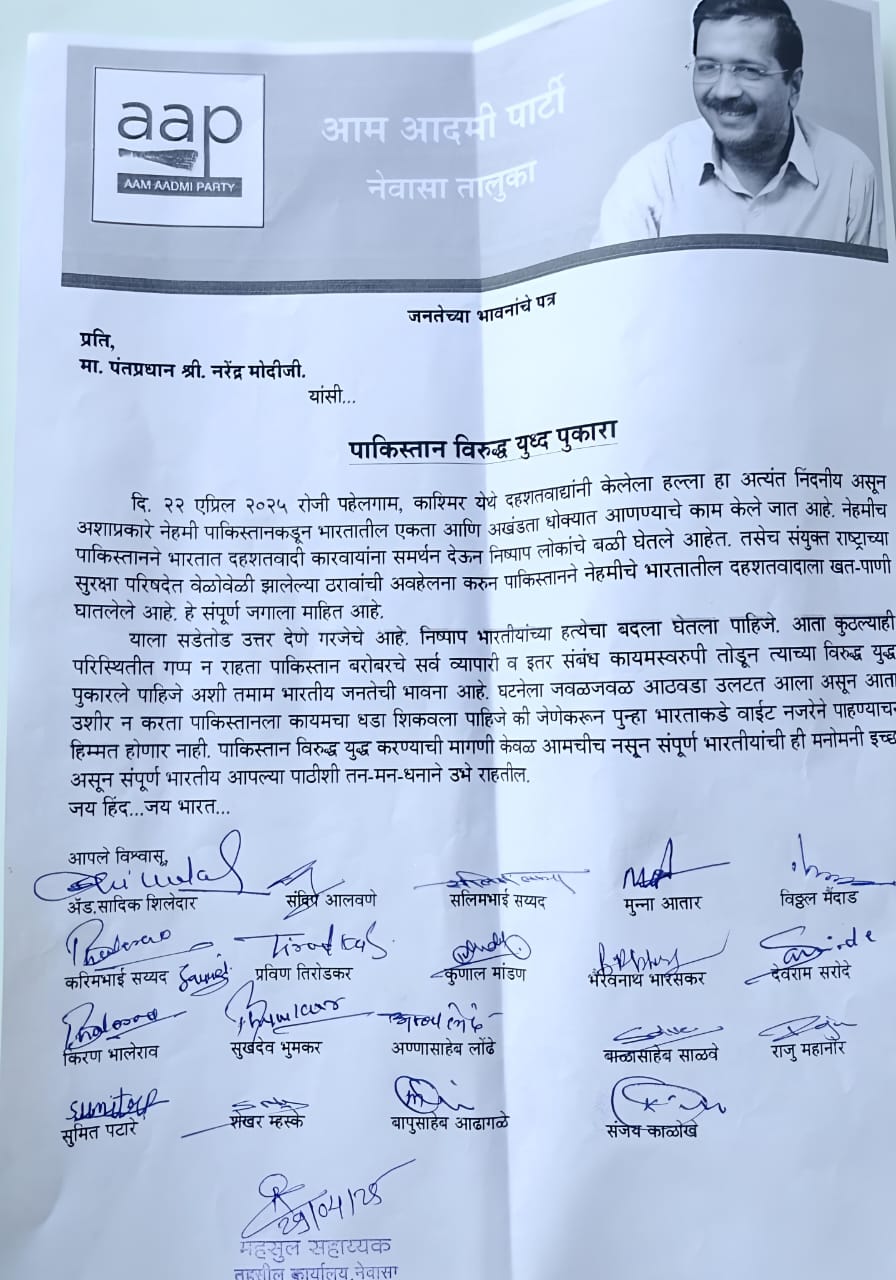 aap
AAM AADMI PARTY
आम आदमी पार्टी
नेवासा तालुका
जनतेच्या भावनांचे पत्र
प्रति,
मा. पंतप्रधान श्री. नरेंद्र मोदीजी.
यांसी...
पाकिस्तान विरुद्ध युध्द पुकारा
दि. २२ एप्रिल २०२५ रोजी पहेलगाम, काश्मिर येथे दहशतवाद्यांनी केलेला हल्ला हा अत्यंत निंदनीय असून
अशाप्रकारे नेहमी पाकिस्तानकडून भारतातील एकता आणि अखंडता धोक्यात आणण्याचे काम केले जात आहे. नेहमीच
पाकिस्तानने भारतात दहशतवादी कारवायांना समर्थन देऊन निष्पाप लोकांचे बळी घेतले आहेत. तसेच संयुक्त राष्ट्राच्या
सुरक्षा परिषदेत वेळोवेळी झालेल्या ठरावांची अवहेलना करुन पाकिस्तानने नेहमीचे भारतातील दहशतवादाला खत-पाणी
घातलेले आहे. हे संपूर्ण जगाला माहित आहे.
याला सडेतोड उत्तर देणे गरजेचे आहे. निष्पाप भारतीयांच्या हत्येचा बदला घेतला पाहिजे. आता कुठल्याही
परिस्थितीत गप्प न राहता पाकिस्तान बरोबरचे सर्व व्यापारी व इतर संबंध कायमस्वरुपी तोडून त्याच्या विरुद्ध युद्ध
पुकारले पाहिजे अशी तमाम भारतीय जनतेची भावना आहे. घटनेला जवळजवळ आठवडा उलटत आला असून आता
उशीर न करता पाकिस्तानला कायमचा धडा शिकवला पाहिजे की जेणेकरून पुन्हा भारताकडे वाईट नजरेने पाहण्याच
हिम्मत होणार नाही. पाकिस्तान विरुद्ध युद्ध करण्याची मागणी केवळ आमचीच नसून संपूर्ण भारतीयांची ही मनोमनी इच्छ
असून संपूर्ण भारतीय आपल्या पाठीशी तन-मन-धनाने उभे राहतील.
जय हिंद...जय भारत...
आपले विश्वासू,
ॲड.सादिक शिलेदार संदिप आलवणे सलिमभाई सय्यद मुन्ना आतार विठ्ठल मैंदाड
करिमभाई सय्यद प्रविण तिरोडकर कुणाल मांडण भैरवनाथ भारस्कर देवराम सरोदे
किरण भालेराव सुखदेव भुमकर अण्णासाहेब लोंढे बाळासाहेब साळवे राजु महानोर
सुमित पटारे शेखर म्हस्के बापुसाहेब आढागळे संजय काळोखे
29/04/25
महसुल सहाय्यक
तहसील कार्यालय,नेवासा